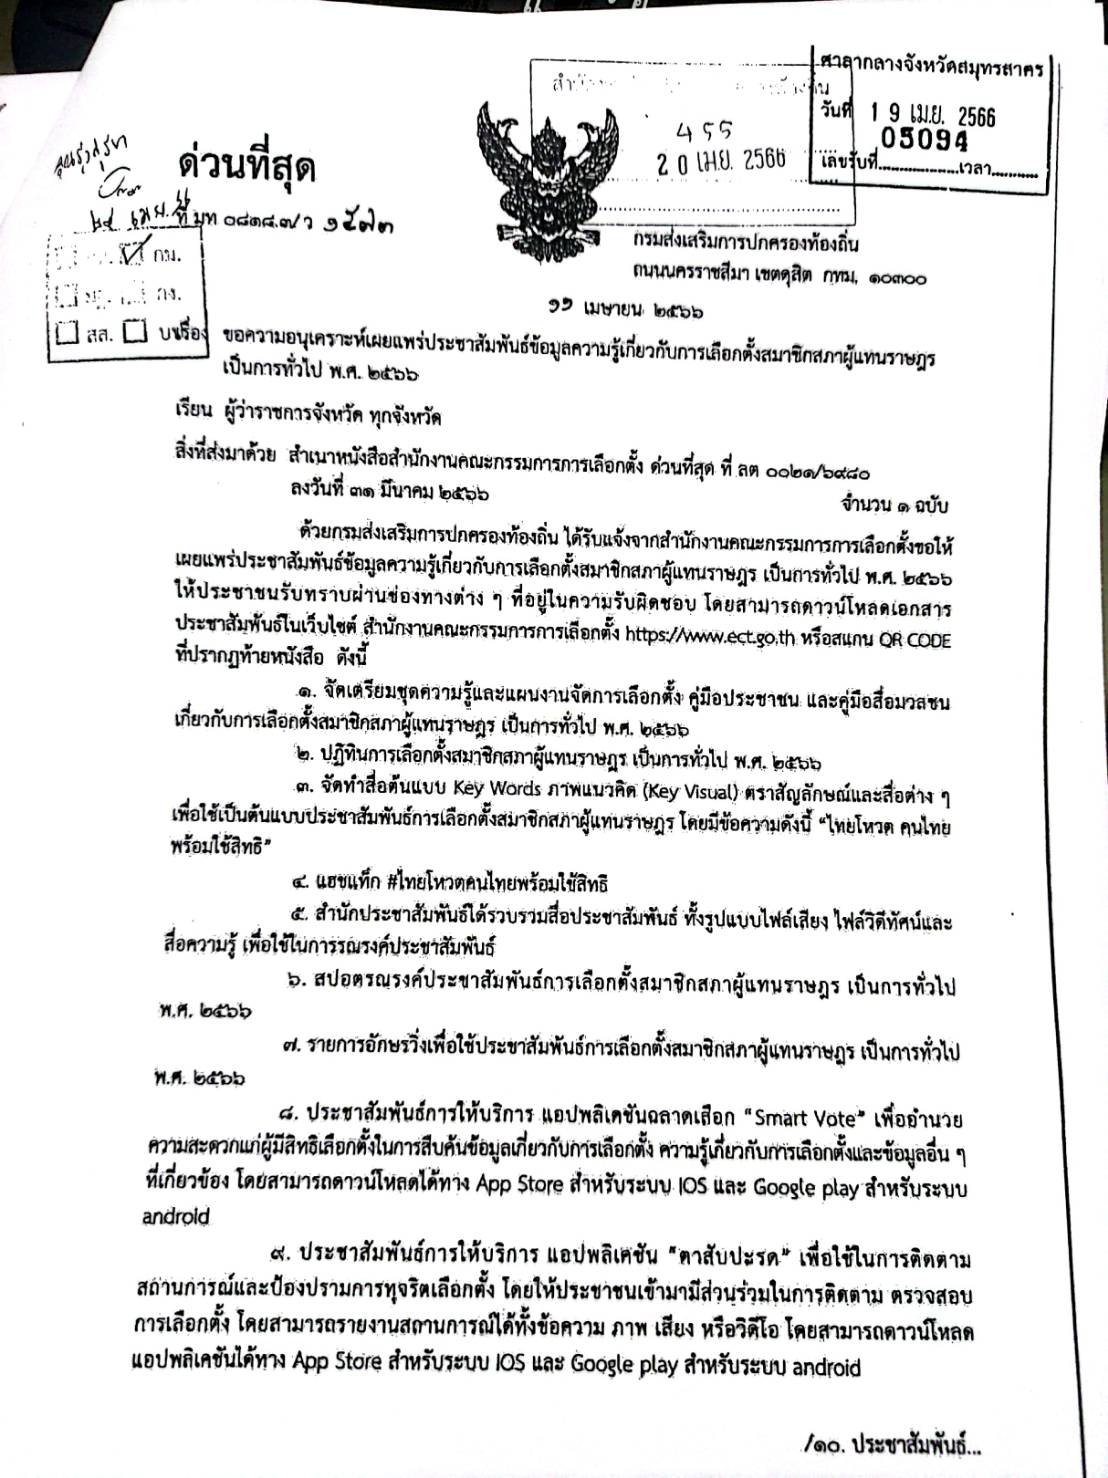 ศาลากลางจังหวัดสมุทรสาคร
วันที่ 19 เม.ย. 2566
05094
เลขรับที่..................เวลา...........
455
20 เม.ย. 2566
ด่วนที่สุด
ที่ มท ๐๘๑๘.๗/ว
กม.
กง.
สส. บห
กรมส่งเสริมการปกครองท้องถิ่น
ถนนนครราชสีมา เขตดุสิต กทม. ๑๐๓๐๐
๑๑ เมษายน ๒๕๖๖
เรื่อง ขอความอนุเคราะห์เผยแพร่ประชาสัมพันธ์ข้อมูลความรู้เกี่ยวกับการเลือกตั้งสมาชิกสภาผู้แทนราษฎร
เป็นการทั่วไป พ.ศ. ๒๕๖๖
เรียน ผู้ว่าราชการจังหวัด ทุกจังหวัด
สิ่งที่ส่งมาด้วย สำเนาหนังสือสำนักงานคณะกรรมการการเลือกตั้ง ด่วนที่สุด ที่ ลต ๐๐๒๑/๖๙๘๐
ลงวันที่ ๓๑ มีนาคม ๒๕๖๖ จำนวน ๑ ฉบับ
ด้วยกรมส่งเสริมการปกครองท้องถิ่น ได้รับแจ้งจากสำนักงานคณะกรรมการการเลือกตั้งขอให้
เผยแพร่ประชาสัมพันธ์ข้อมูลความรู้เกี่ยวกับการเลือกตั้งสมาชิกสภาผู้แทนราษฎร เป็นการทั่วไป พ.ศ. ๒๕๖๖
ให้ประชาชนรับทราบผ่านช่องทางต่าง ๆ ที่อยู่ในความรับผิดชอบ โดยสามารถดาวน์โหลดเอกสาร
ประชาสัมพันธ์ในเว็บไซต์ สำนักงานคณะกรรมการการเลือกตั้ง https://www.ect.go.th หรือสแกน QR CODE
ที่ปรากฏท้ายหนังสือ ดังนี้
๑. จัดเตรียมชุดความรู้และแผนงานจัดการเลือกตั้ง คู่มือประชาชน และคู่มือสื่อมวลชน
เกี่ยวกับการเลือกตั้งสมาชิกสภาผู้แทนราษฎร เป็นการทั่วไป พ.ศ. ๒๕๖๖
๒. ปฏิทินการเลือกตั้งสมาชิกสภาผู้แทนราษฎร เป็นการทั่วไป พ.ศ. ๒๕๖๖
๓. จัดทำสื่อต้นแบบ Key Words ภาพแนวคิด (Key Visual) ตราสัญลักษณ์และสื่อต่าง ๆ
เพื่อใช้เป็นต้นแบบประชาสัมพันธ์การเลือกตั้งสมาชิกสภาผู้แทนราษฎร โดยมีข้อความดังนี้ “ไทยโหวต คนไทย
พร้อมใช้สิทธิ”
๔. แฮชแท็ก #ไทยโหวตคนไทยพร้อมใช้สิทธิ
๕. สำนักประชาสัมพันธ์ได้รวบรวมสื่อประชาสัมพันธ์ ทั้งรูปแบบไฟล์เสียง ไฟล์วิดีทัศน์และ
สื่อความรู้ เพื่อใช้ในการรณรงค์ประชาสัมพันธ์
๖. สปอตรณรงค์ประชาสัมพันธ์การเลือกตั้งสมาชิกสภาผู้แทนราษฎร เป็นการทั่วไป
พ.ศ. ๒๕๖๖
๗. รายการอักษรวิ่งเพื่อใช้ประชาสัมพันธ์การเลือกตั้งสมาชิกสภาผู้แทนราษฎร เป็นการทั่วไป
พ.ศ. ๒๕๖๖
๘. ประชาสัมพันธ์การให้บริการ แอปพลิเคชันฉลาดเลือก “Smart Vote” เพื่ออำนวย
ความสะดวกแก่ผู้มีสิทธิเลือกตั้งในการสืบค้นข้อมูลเกี่ยวกับการเลือกตั้ง ความรู้เกี่ยวกับการเลือกตั้งและข้อมูลอื่น ๆ
ที่เกี่ยวข้อง โดยสามารถดาวน์โหลดได้ทาง App Store สำหรับระบบ IOS และ Google play สำหรับระบบ
android
๙. ประชาสัมพันธ์การให้บริการ แอปพลิเคชัน “ตาสับปะรด” เพื่อใช้ในการติดตาม
สถานการณ์และป้องปรามการทุจริตเลือกตั้ง โดยให้ประชาชนเข้ามามีส่วนร่วมในการติดตาม ตรวจสอบ
การเลือกตั้ง โดยสามารถรายงานสถานการณ์ได้ทั้งข้อความ ภาพ เสียง หรือวิดีโอ โดยสามารถดาวน์โหลด
แอปพลิเคชันได้ทาง App Store สำหรับระบบ IOS และ Google play สำหรับระบบ android
/๑๐. ประชาสัมพันธ์...